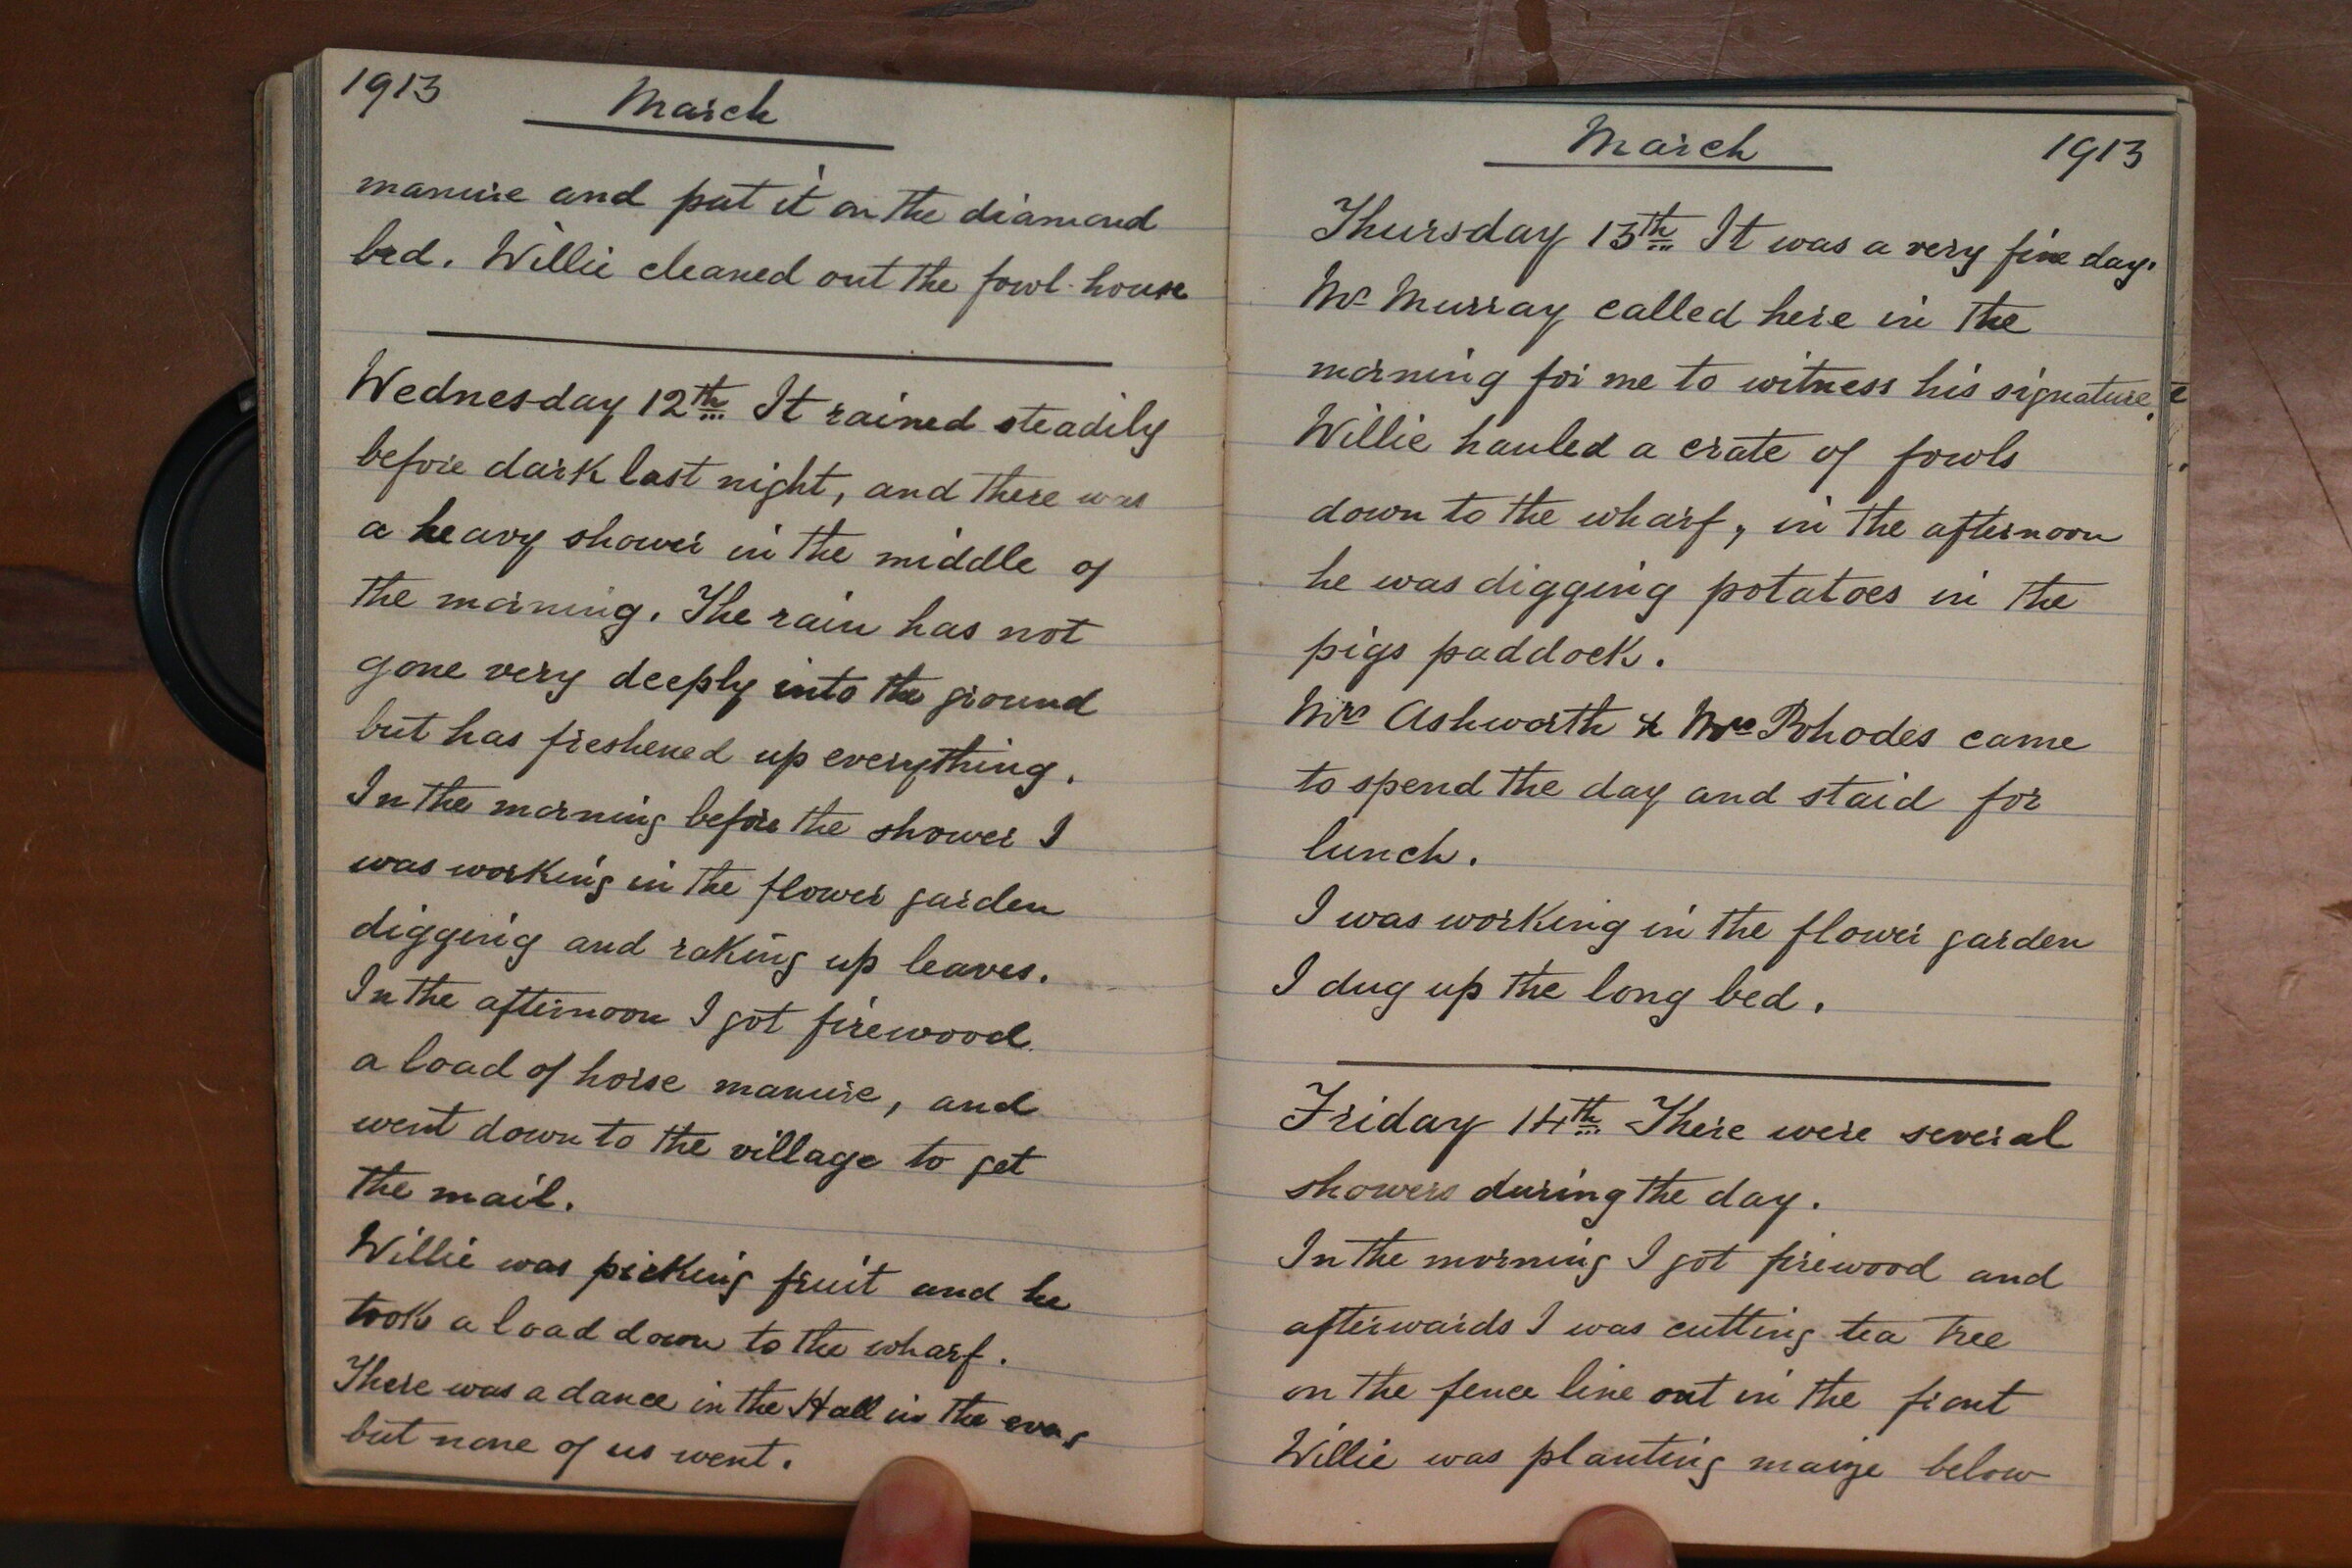 1913 March
manure and put it on the diamond
bed. Willie cleaned out the fowl-house
Wednesday 12th It rained steadily
before dark last night, and there was
a heavy shower in the middle of
the morning. The rain has not
gone very deeply into the ground
but has freshened up everything.
In the morning before the shower I
was working in the flower garden
digging and raking up leaves.
In the afternoon I got firewood
a load of horse manure, and
went down to the village to get
the mail.
Willie was picking fruit and he
took a load down to the wharf.
There was a dance in the Hall in the evng
but none of us went.
March 1913
Thursday 13th It was a very fine day.
Mr Murray called here in the
morning for me to witness his signature.
Willie hauled a crate of fowls
down to the wharf, in the afternoon
he was digging potatoes in the
pigs paddock.
Mrs Ashworth & Mrs Rhodes came
to spend the day and staid for
lunch.
I was working in the flower garden
I dug up the long bed.
Friday 14th There were several
showers during the day.
In the morning I got firewood and
afterwards I was cutting tea tree
on the fence line out in the front
Willie was planting maize below